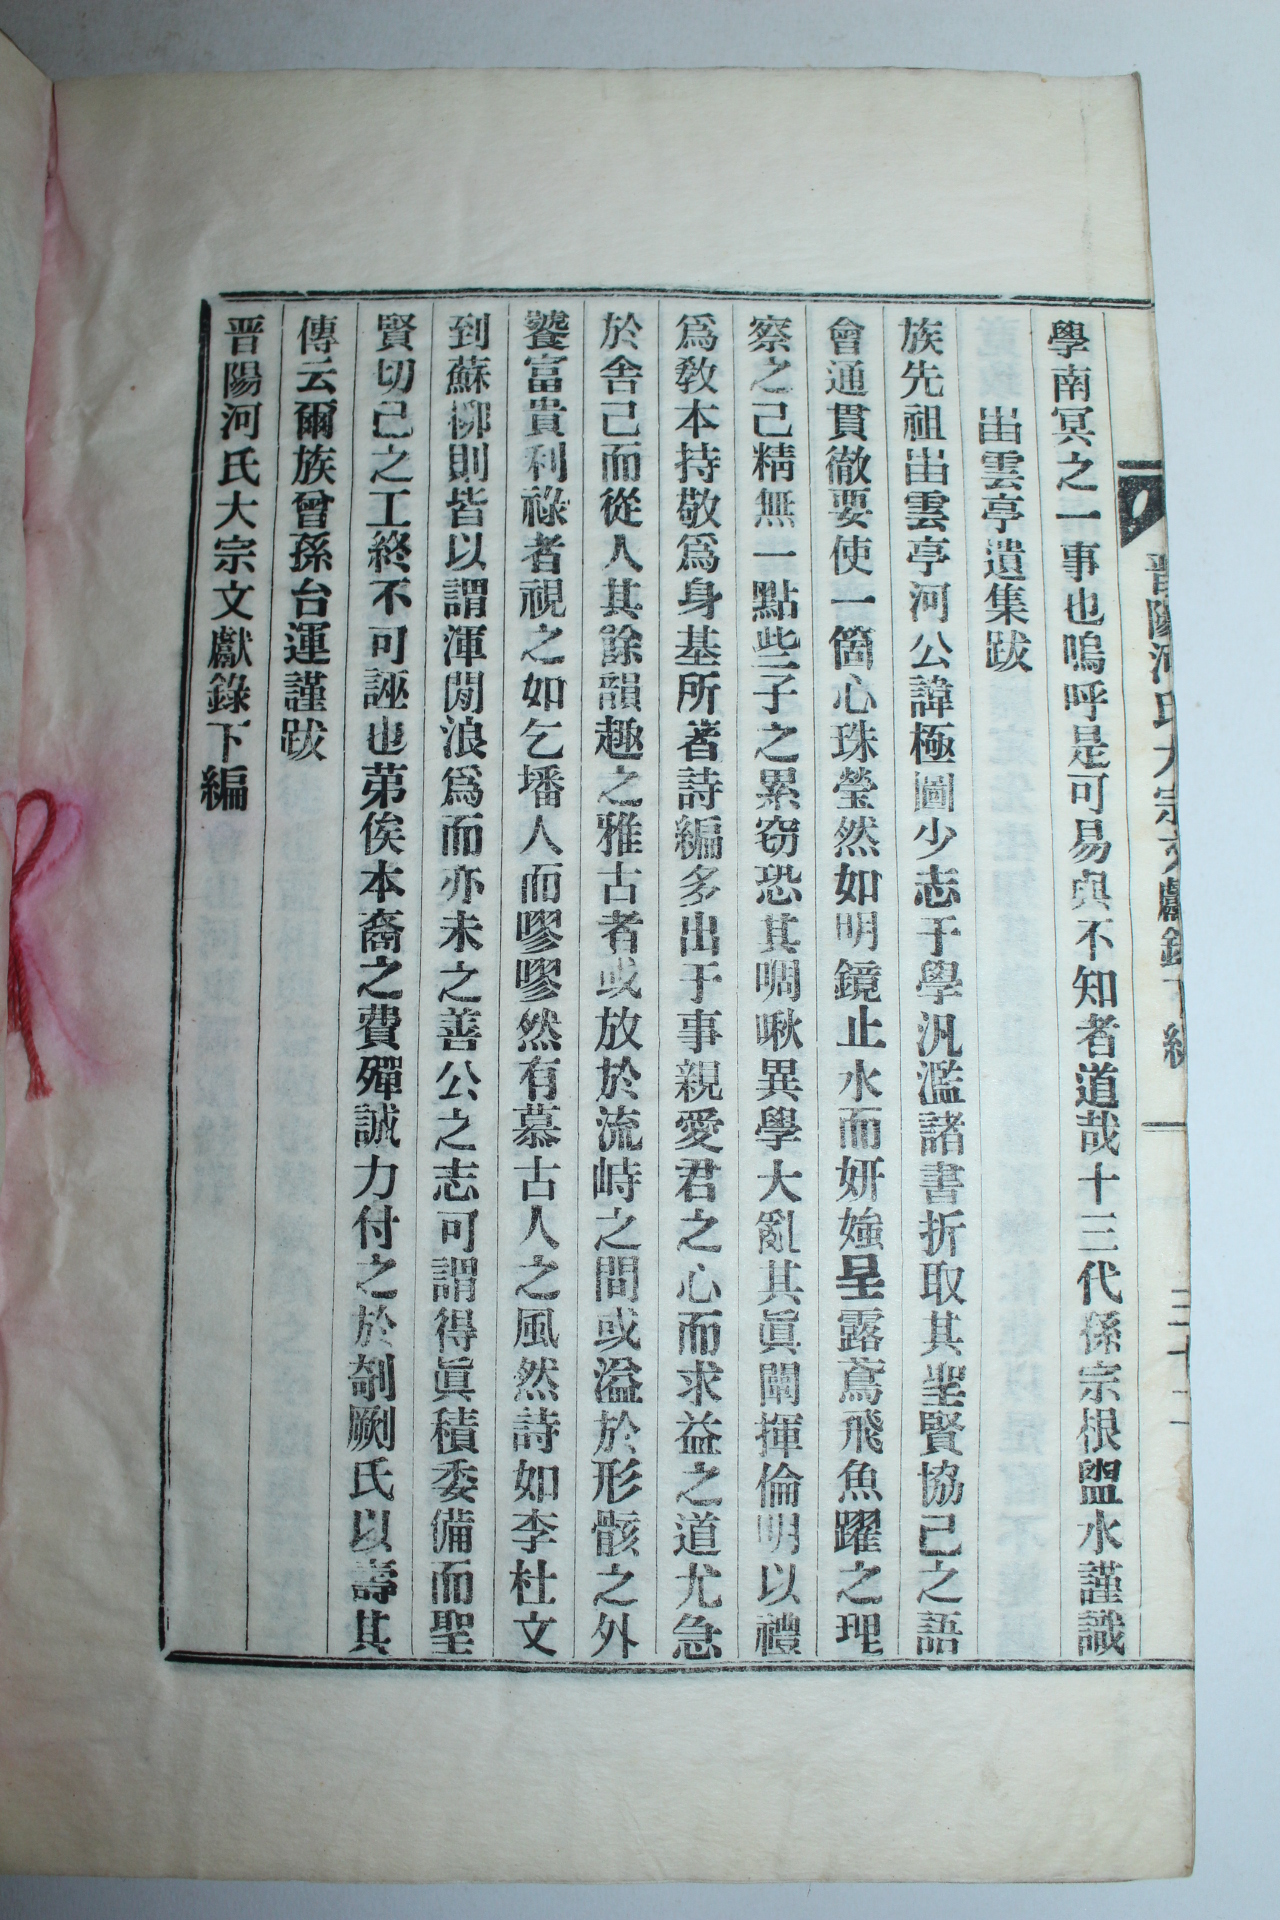 晋陽河氏大宗文獻錄下編
三十二
學南冥之一事也嗚呼是可易與不知者道哉十三代孫宗根盥水謹識
出雲亭遺集跋
族先祖出雲亭河公諱極圖少志于學汎濫諸書折取其聖賢協己之語
會通貫徹要使一箇心珠瑩然如明鏡止水而妍媸呈露鳶飛魚躍之理
察之己精無一點些子之累窃恐其啁啾異學大亂其眞闡揮倫明以禮
爲敎本持敬爲身基所著詩編多出于事親愛君之心而求益之道尤急
於舍己而從人其餘韻趣之雅古者或放於流峙之間或溢於形骸之外
饕富貴利祿者視之如乞墦人而嘐嘐然有慕古人之風然詩如李杜文
到蘇柳則皆以謂渾閒浪爲而亦未之善公之志可謂得眞積委備而聖
賢切己之工終不可誣也苐俟本裔之費殫誠力付之於剞劂氏以壽其
傳云爾族曾孫台運謹跋
晋陽河氏大宗文獻錄下編